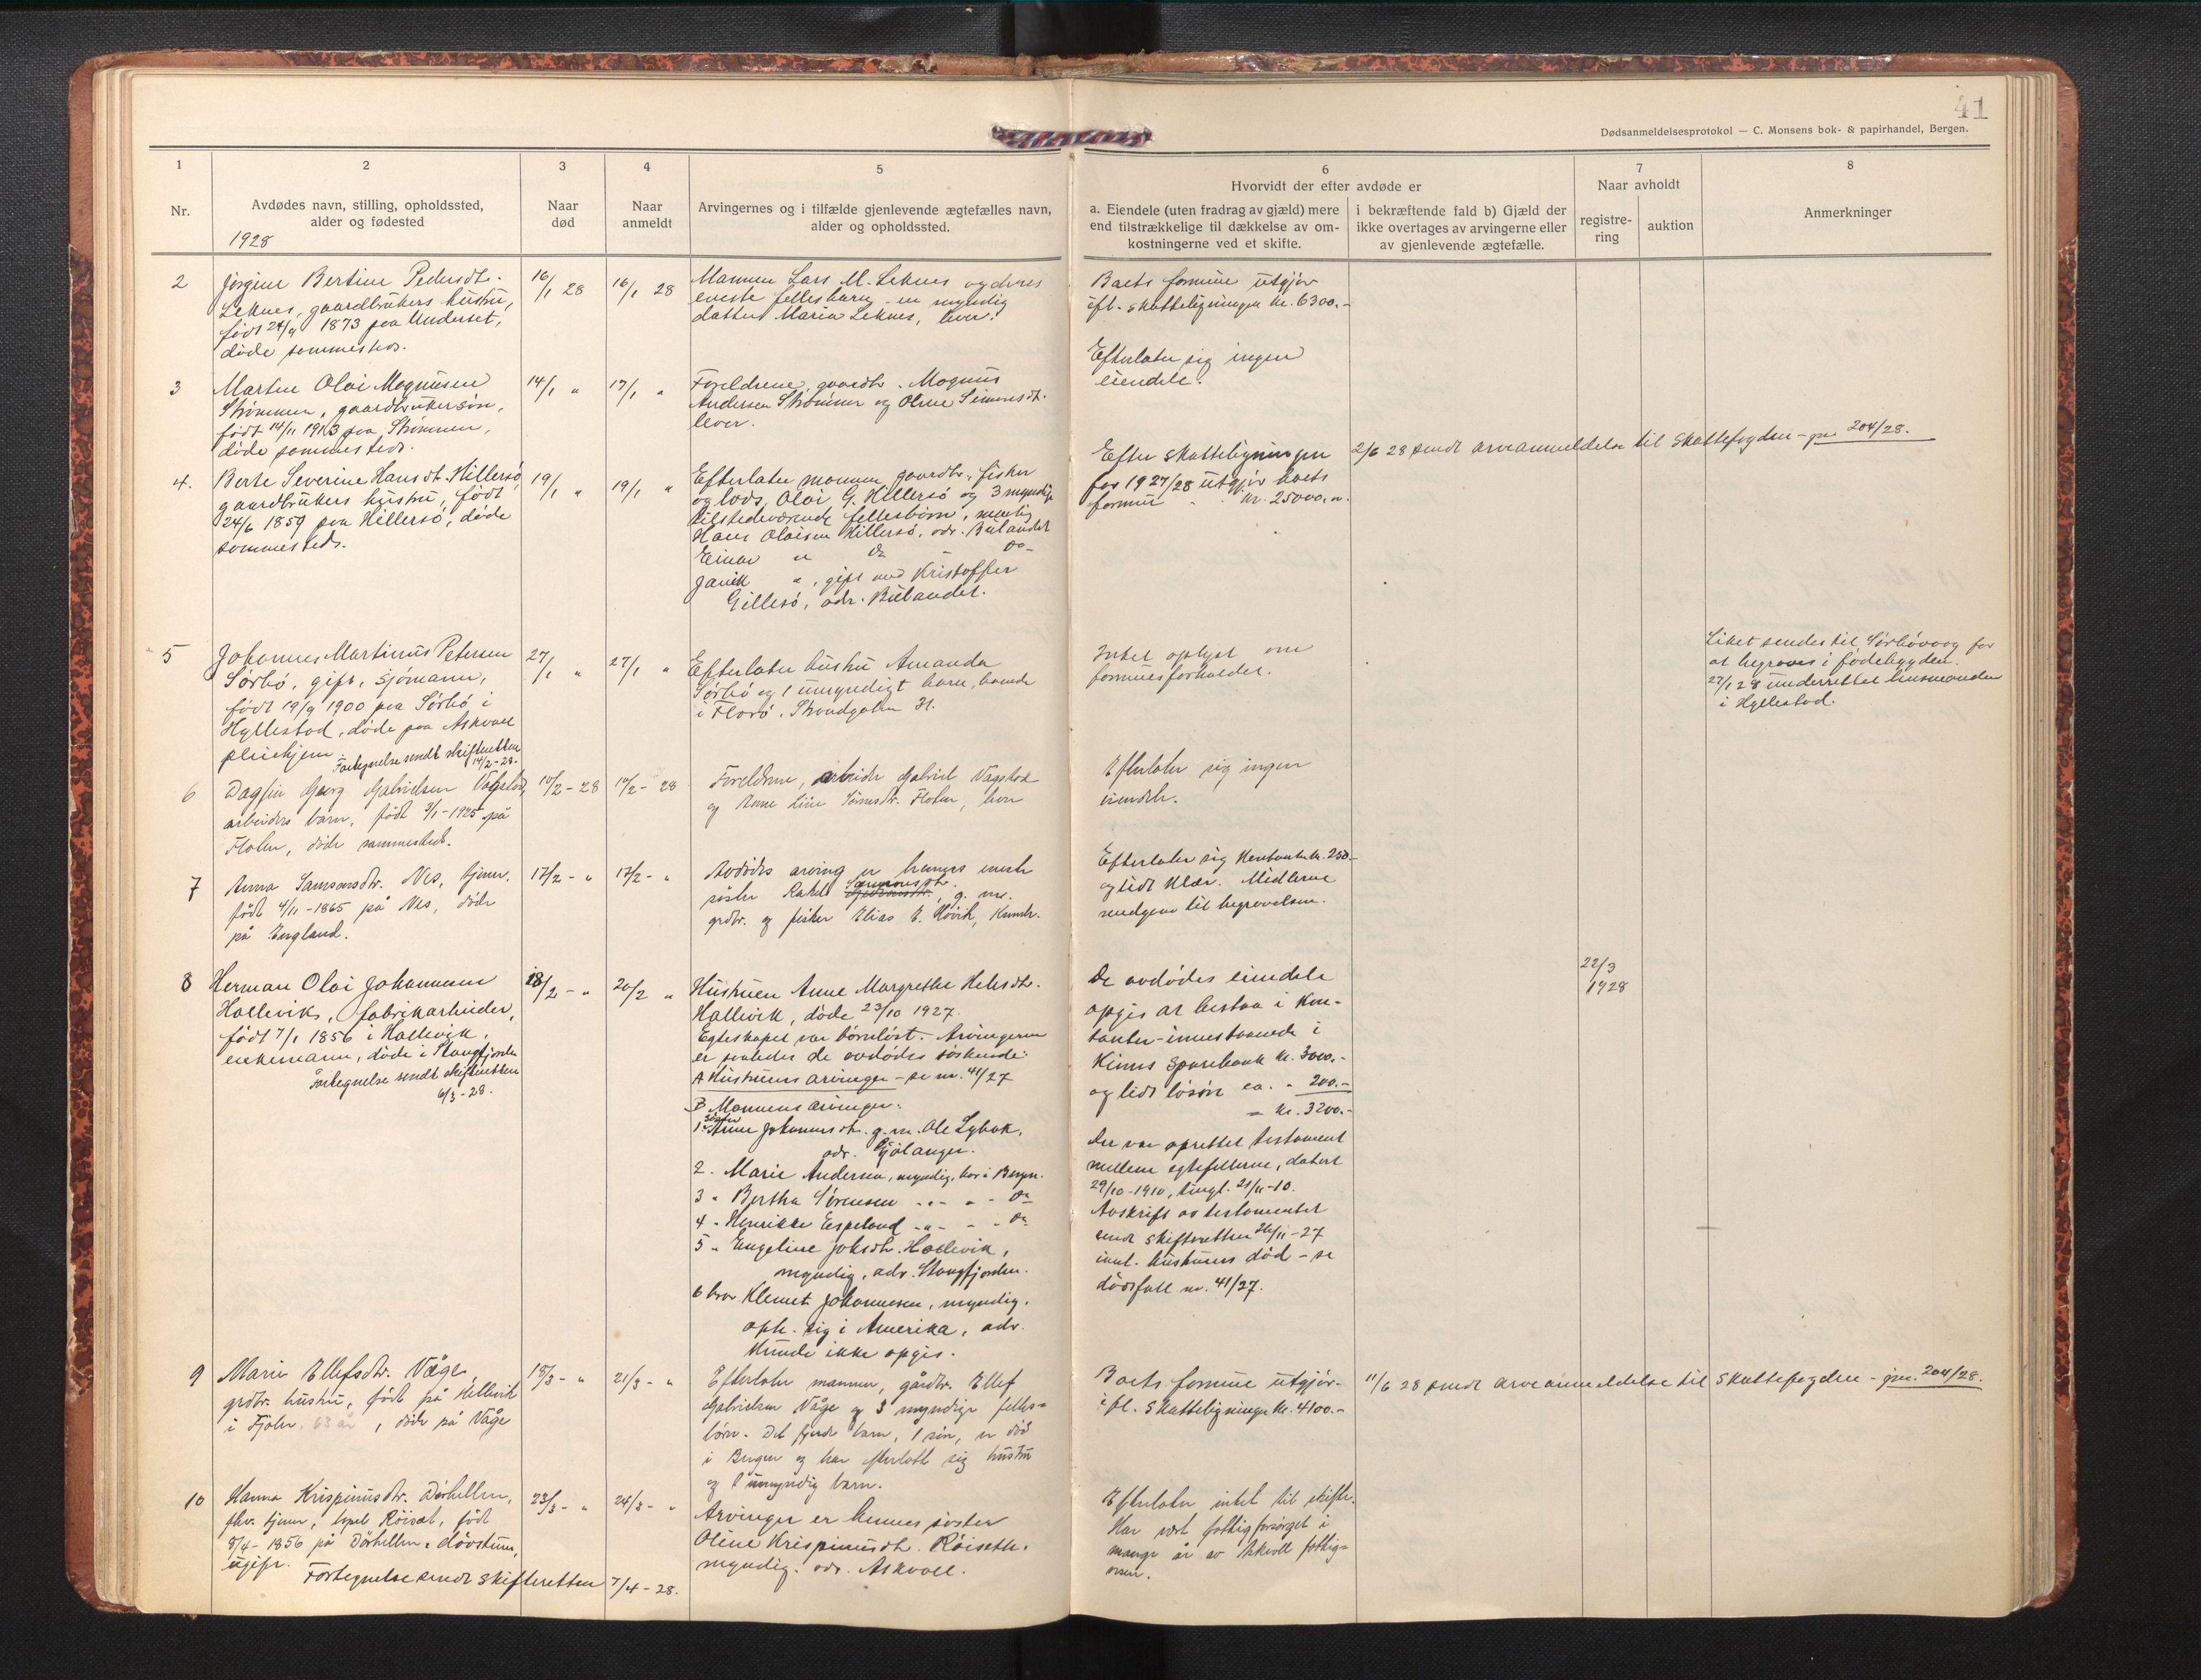 41
Dødsanmeldelsesprotokol — C. Monsens bok- & papirhandel, Bergen.
1
2
3
4
5
6
7
8
Nr.
Avdødes navn, stilling, opholdssted,
alder og fødested
1928
Naar
død
Naar
anmeldt
Arvingernes og i tilfælde gjenlevende ægtefælles navn,
alder og opholdssted.
Hvorvidt der efter avdøde er
a. Eiendele (uten fradrag av gjæld) mere
end tilstrækkelige til dækkelse av om-
kostningerne ved et skifte.
i bekræftende fald b) Gjæld der
ikke overtages av arvingerne eller
av gjenlevende ægtefælle.
Naar avholdt
registre-
ring
auktion
Anmerkninger
2
Jørgine Bertine Pedersdtr.
Leknes, gaardbrukers hustru,
født 24/9 1873 paa Underset,
døde sammesteds.
16/1 28
16/1 28
Mannen Lars M. Leknes og deres
eneste fellesbarn - en myndig
datter Maria Leknes, lever.
Boets formue utgjør
ifl. skatteligningen kr. 6300.-
3
Martin Olai Magnusen
Strømmen, gaardbrukersøn,
født 14/11 1913 paa Strømmen,
døde sammesteds.
14/1 "
17/1 "
Foreldrene, gaardbr. Magnus
Andersen Strømmen og Oline Simonsdt.
lever.
Efterlater sig ingen
eiendele.
4.
Berte Severine Hansdt. Hillersø,
gaardbrukers hustru, født
24/6 1859 paa Hillersø, døde
sammesteds.
19/1 "
19/1 "
Efterlater mannen, gaardbr., fisker
og lods, Olai G. Hillersø og 3 myndige
tilstedeværende fellesbørn, nemlig
Hans Olaisen Hillersø, adr. Bulandet
Einar " do - do-
Janik ", gift med Kristoffer
Gillesø, adr. Bulandet.
Efter skatteligningen
for 1927/28 utgjør boets
formue - kr. 25000.-
2/6 28 sendt arveanmeldelse til skattefogden - jnr. 204/28.
5
Johannes Martinus Petersen
Sørbø, gift, sjømann,
født 19/9 1900 paa Sørbø i
Hyllestad, døde paa Askvoll
pleiehjem.
Fortegnelse sendt skifteretten
14/2-28.
27/1 "
27/1 "
Efterlater hustru Amanda
Sørbø og 1 umyndigt barn, boende
i Florø, Strandgaten 31.
Intet oplyst om
formuesforholdet.
Liket sendes til Sørbøvaag for
at begraves i fødebygden.
27/1 28 underrettet lensmanden
i Hyllestad.
6
Dagfin Georg Gabrielsen Vågstad,
arbeiders barn, født 3/1-1925 på
Holen, døde sammesteds.
10/2-28
10/2-28
Foreldrene, arbeider Gabriel Vågstad
og Anne Line Sørensdtr. Holen, lever
Efterlater sig ingen
eiendele.
7
Anna Samsonsdtr. Nes, tjener,
født 4/11-1865 på Nes, døde
på England.
17/2- "
17/2- "
Avdødes arving er hennes eneste
søster Rakel Samsonsdtr., g. m.
grdbr. og fisker Elias E. Høvik,
Efterlater sig kontanter kr. 250-
og lidt klær. Midlerne
medgaar til begravelsen.
8
Herman Olai Johannesen
Hallevik, fabrikarbeider,
født 7/1 1856 i Hallevik,
enkemann, døde i Stangfjorden
Fortegnelse sendt skifteretten
6/3-28.
18/2- "
20/2 "
Hustruen Anne Margrethe
Hallevik, døde 23/10 1927.
Egteskapet var barnløst. Arvingerne
er saaledes de avdødes søskende:
A Hustruens arvinger - se nr. 41/27
B Mannens arvinger:
1. Søster Anne Johannesdt. g. m. Ole Lybak,
adr. Gjølanger.
2 - Marie Andersen, myndig, bor i Bergen.
3 - Bertha Sørensen -"- - - do
4 - Henrikke Espeland -"- - - do
5 - Engeline Johsdt. Hallevik,
myndig, adr. Stangfjorden.
6 bror Klemet Johannesen, myndig,
oph. sig i Amerika, adr.
kunde ikke opgis.
De avdødes eiendele
opgis at bestaa i kon-
tanter - innestaaende i
Kinns Sparebank kr. 3000.-
og lidt løsøre ca. - 200.-
= kr. 3200.-
Der var oprettet testament
mellem egtefellerne, datert
29/10-1910, tingl. 21/11-10.
Avskrift av testamentet
sendt skifteretten 26/11-27
innl. hustruens død - se
dødsfall nr. 41/27.
22/3
1928
9
Marie Ellefsdtr. Våge,
grdbr. hustru, født på Hellevik
i Fjaler, 63 år, døde på Våge
18/3- "
21/3- "
Efterlater mannen, gårdbr. Ellef
Gabrielsen Våge og 3 myndige felles=
børn. Det fjerde barn, 1 søn, er død
i Bergen og har efterlatt sig hustru
og 1 umyndig barn.
Boets formue utgjør-
ifl. skatteligningen kr. 4100.-
11/6 28 sendt arveanmeldelse til skattefogden - jnr. 204/28.
10
Hanna Krispinusdtr. Dørhellen,
fhv. tjener, Røiset, født
8/4-1856 på Dørhellen, døvstum,
ugift.
Fortegnelse sendt skifteretten 7/4-28.
23/3- "
24/3- "
Arvinger er hennes søster
Oline Krispinusdt. Røiseth,
myndig, adr. Askvoll.
Efterlater intet til skifte.
Har vært fattigforsørget i
mange år av Askvoll fattig=
vesen.